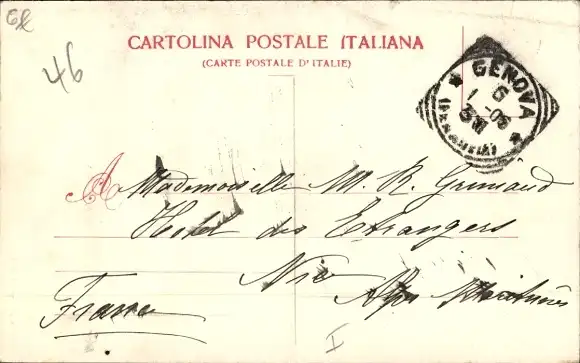 46
CARTOLINA POSTALE ITALIANA
(CARTE POSTALE D'ITALIE)
GENOVA
(FERROVIA)
A Mademoiselle M. R. Grimaud
Hotel des Etrangers
Nice
Alpes Maritimes
France
I